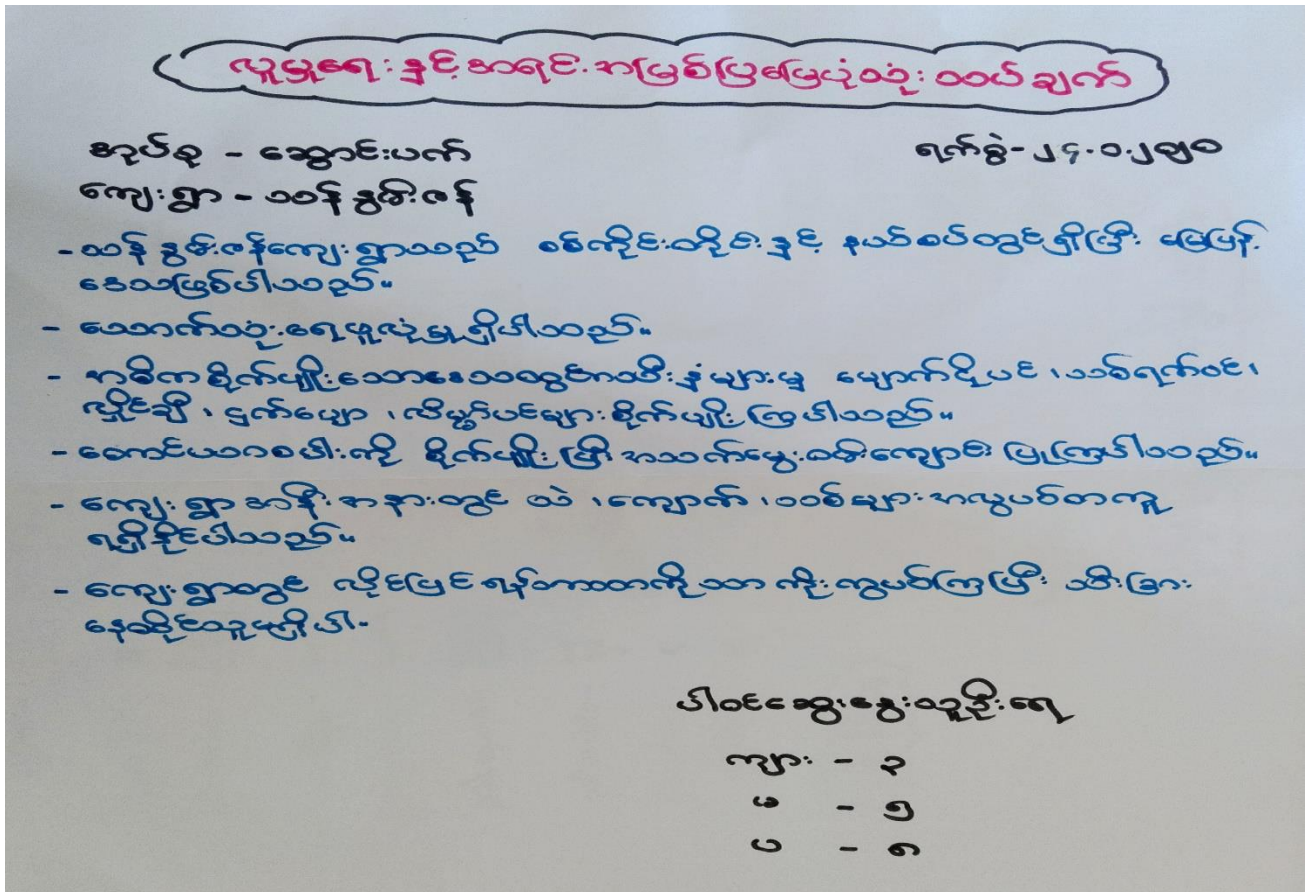 လူမှုရေးနှင့်အရင်းအမြစ်ပြမြေပုံသုံးသပ်ချက်
အုပ်စု - ဆွောင်းပက်
ရက်စွဲ-၂၄.၁.၂၅၁၀
ကျေးရွာ - သန်နွမ်ဇန်
- သန်နွမ်ဇန်ကျေးရွာသည် စစ်ကိုင်းတိုင်းနှင့် နယ်စပ်တွင်ရှိပြီး မြေပြန့်
ဒေသဖြစ်ပါသည်။
- သောက်သုံးရေဖူလုံမှုရှိပါသည်။
- အဓိကစိုက်ပျိုးသောဒေသထွက်သီးနှံများမှ မျောက်ငိုပင်၊ သစ်ရက်ပင်၊
လှိုင်ချီ၊ ငှက်ပျော၊ လိမ္မော်ပင်များစိုက်ပျိုးကြပါသည်။
- တောင်ယာစပါးကို စိုက်ပျိုးပြီး အသက်မွေးဝမ်းကျောင်း ပြုကြပါသည်။
- ကျေးရွာအနီးအနားတွင် သဲ၊ ကျောက်၊ သစ်များအလွယ်တကူ
ရရှိနိုင်ပါသည်။
- ကျေးရွာတွင် လိုင်ပြင်ရန်ဘာသာကိုသာ ကိုးကွယ်ကြပြီး သီးခြား
နေထိုင်သူမရှိပါ။
ပါဝင်ဆွေးနွေးသူဦးရေ
ကျား - ၃
မ - ၅
ပ - ၈